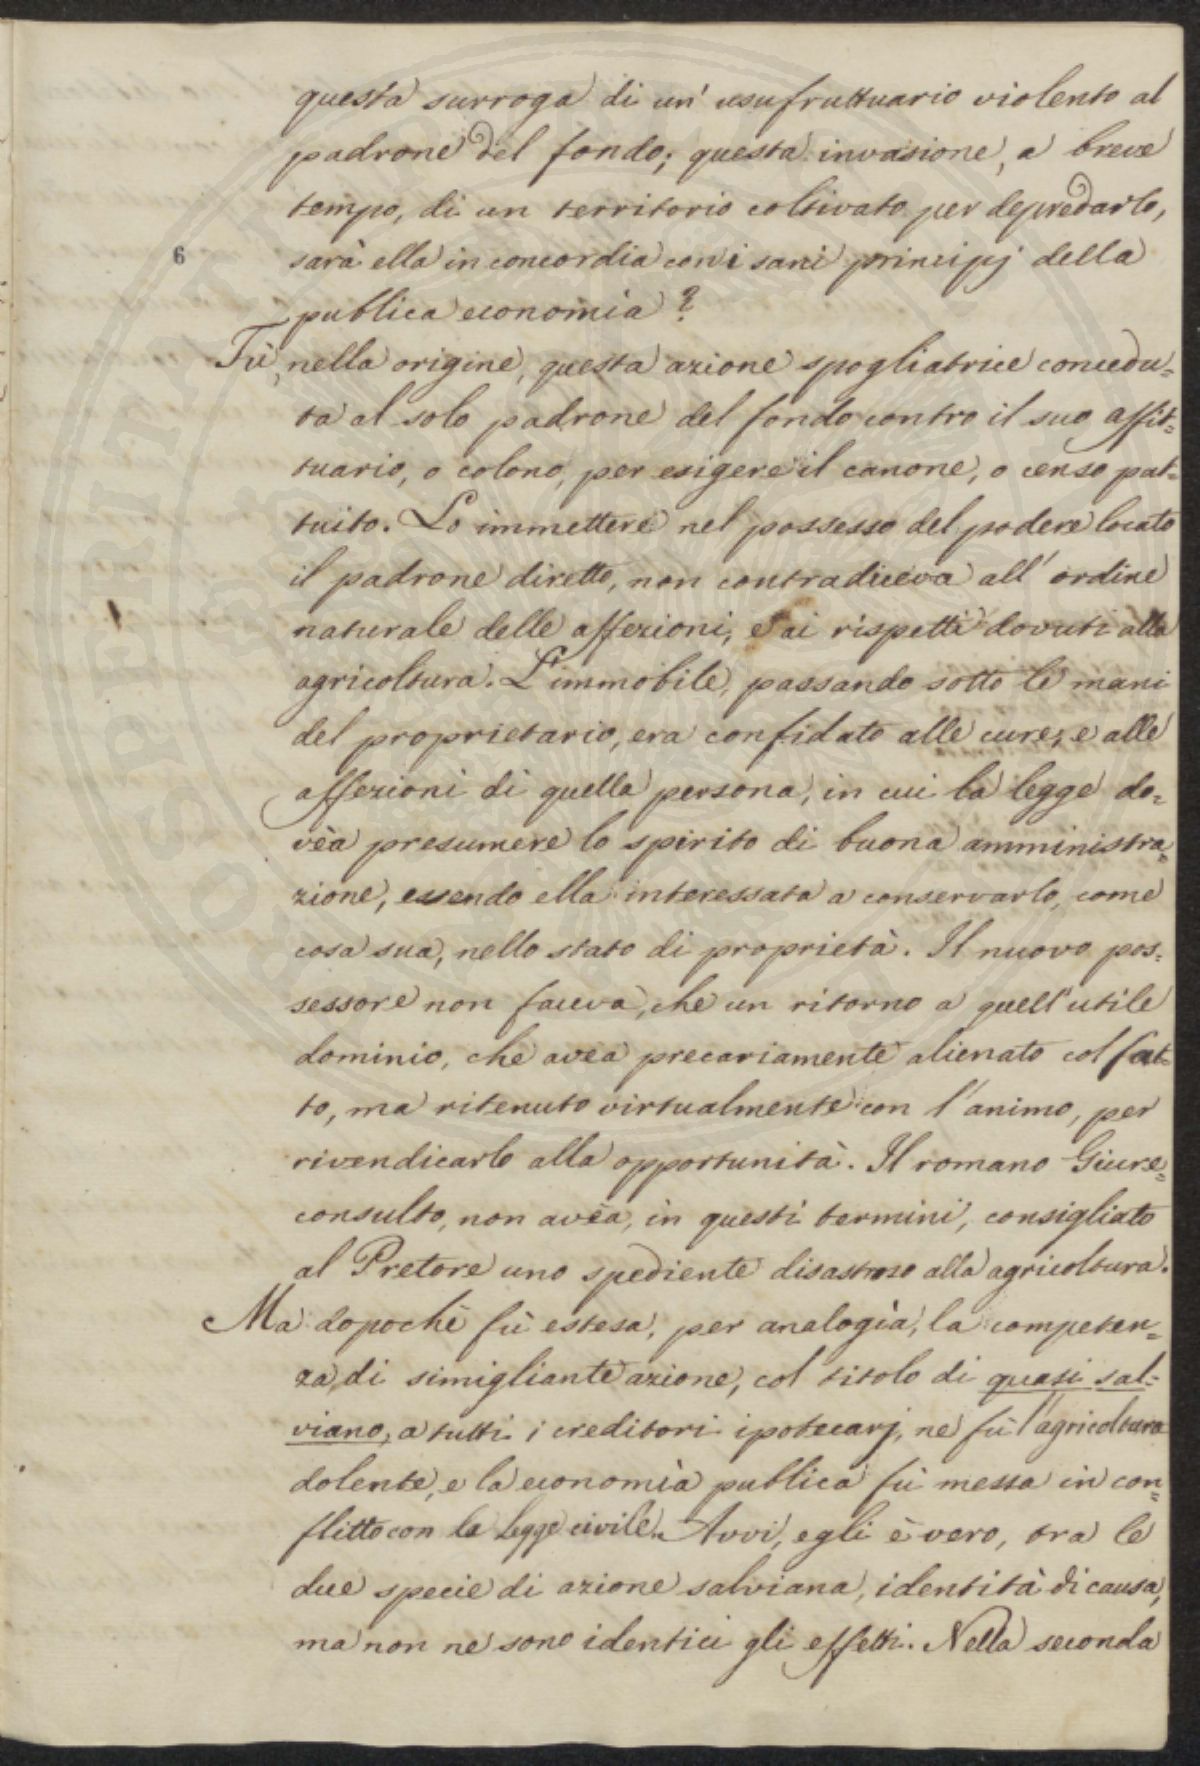 questa surroga di un' usufruttuario violento al
padrone del fondo; questa invasione, a breve
tempo, di un territorio coltivato per depredarlo,
6
sarà ella in concordia con i sani principj della
publica economìa?
Fù, nella origine, questa azione spogliatrice concedu=
ta al solo padrone del fondo contro il suo affit=
tuario, o colono, per esigere il canone, o censo pat=
tuito. Lo immettere nel possesso del podere locato
il padrone diretto, non contradiceva all' ordine
naturale delle affezioni, e ai rispetti dovuti alla
agricoltura. L'immobile, passando sotto le mani
del proprietario, era confidato alle cure, e alle
affezioni di quella persona, in cui la legge do=
vèa presumere lo spirito di buona amministra=
zione, essendo ella interessata a conservarlo, come
cosa sua, nello stato di proprietà. Il nuovo pos=
sessore non faceva, che un ritorno a quell'utile
dominio, che avea precariamente alienato col fat=
to, ma ritenuto virtualmente con l'animo, per
rivendicarlo alla opportunità. Il romano Giure=
consulto, non avèa, in questi termini, consigliato
al Pretore uno spediente disastroso alla agricoltura.
Ma dopochè fù estesa, per analogìa, la competen=
za, di simigliante azione, col titolo di quasi sal=
viano, a tutti i creditori ipotecarj, ne fù l'agricoltura
dolente, e la economìa publica fù messa in con=
flitto con la legge civile. Avvi, egli è vero, tra le
due specie di azione salviana, identità di causa,
ma non ne sono identici gli effetti. Nella seconda